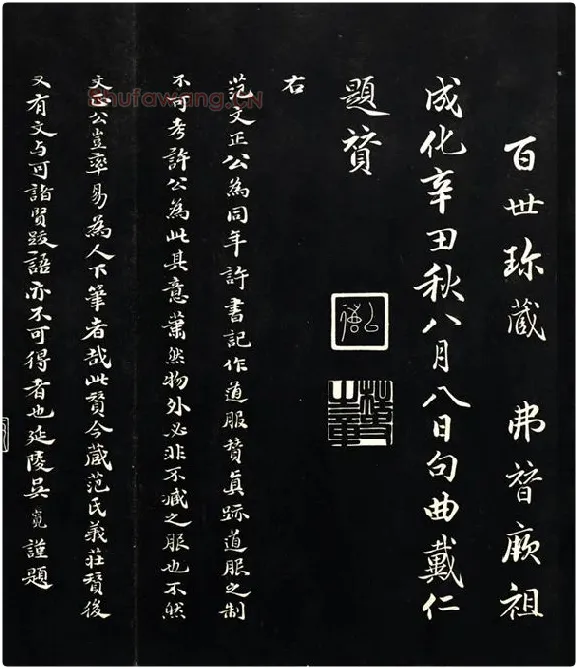 百世珎藏 弗替厥祖
成化辛丑秋八月八日句曲戴仁
題賛
右
范文正公為同年許書記作道服賛真跡道服之制
不可考許公為此其意蕭然物外必非不臧之服也不然
文正公豈率易為人下筆者哉此賛今藏范氏義莊賛後
又有文与可諸賢跋語亦不可得者也延陵吳寛謹題
shufawang.CN